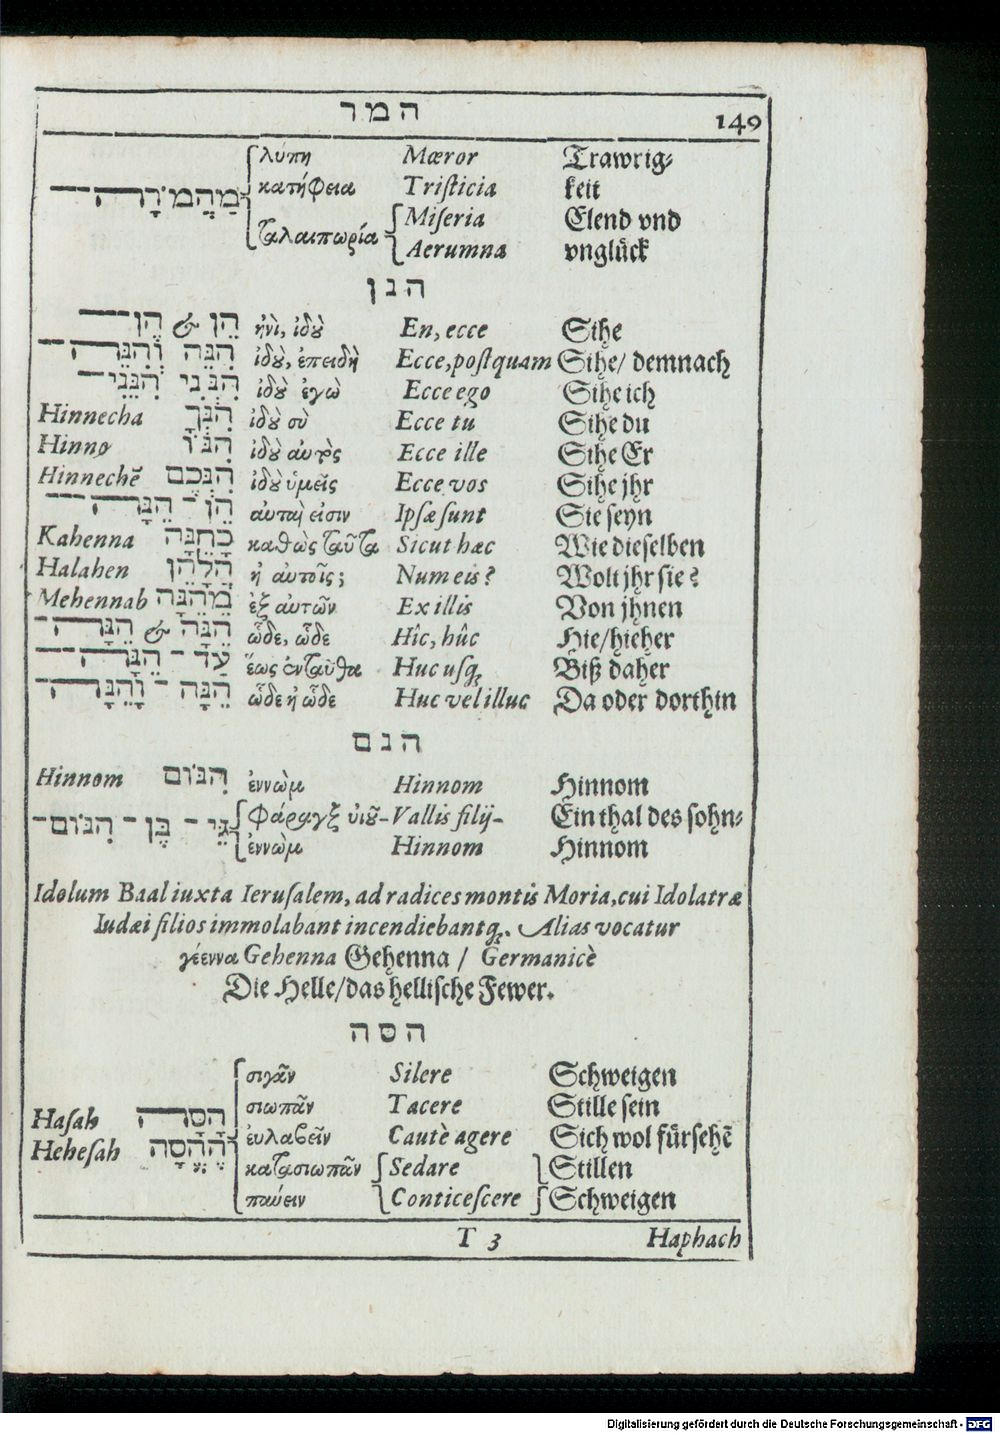 המר 149
מַהֲמֹרָה λύπη Mæror Trawrig-
κατήφεια Tristicia keit
ταλαιπωρία Miseria Elend vnd
Aerumna vnglück
הנן
הֵן & הֶן ἠνὶ, ἰδοὺ En, ecce Sihe
הִנֵּה וְהִנֵּה ἰδοὺ, ἐπειδὴ Ecce, postquam Sihe/ demnach
הִנְּנִי הִנֵּנִי ἰδοὺ ἐγὼ Ecce ego Sihe ich
Hinnecha הִנְּךָ ἰδοὺ σὺ Ecce tu Sihe du
Hinno הִנּוֹ ἰδοὺ αὐτὸς Ecce ille Sihe Er
Hinnechē הִנְּכֶם ἰδοὺ ὑμεῖς Ecce vos Sihe jhr
הֵן - הֵנָּה αὐταὶ εἰσιν Ipsæ sunt Sie seyn
Kahenna כָּהֵנָּה καθὼς ταῦτα Sicut hæc Wie dieselben
Halahen הֲלָהֵן ἠ αὐτοῖς; Num eis? Wolt jhr sie?
Mehennah מֵהֵנָּה ἐξ αὐτῶν Ex illis Von jhnen
הֵנָּה & הֵנָּה ὧδε, ὧδε Hîc, hûc Hie/hieher
עַד - הֵנָּה ἕως ἐνταῦθα Huc usq; Biß daher
הֵנָּה - וָהֵנָּה ὧδε ἠ ὧδε Huc vel illuc Da oder dorthin
הנם
Hinnom הִנּוֹם ἐννὼμ Hinnom Hinnom
גֵּי - בֶן - הִנּוֹם Φάραγξ υἱοῦ- Vallis filij- Ein thal des sohn-
ἐννὼμ Hinnom Hinnom
Idolum Baal iuxta Ierusalem, ad radices montis Moria, cui Idolatræ
Iudæi filios immolabant incendiebantq;. Alias vocatur
γέεννα Gehenna Gehenna / Germanicè
Die Helle/das hellische Fewer.
הסה
σιγᾶν Silere Schweigen
σιωπᾶν Tacere Stille sein
Hasah הָסָה
Hehesah הֶהֱסָה ἐυλαβεῖν Cautè agere Sich wol fürsehē
κατασιωπᾶν Sedare Stillen
παύειν Conticescere Schweigen
T 3 Haphach
Digitalisierung gefördert durch die Deutsche Forschungsgemeinschaft - DFG